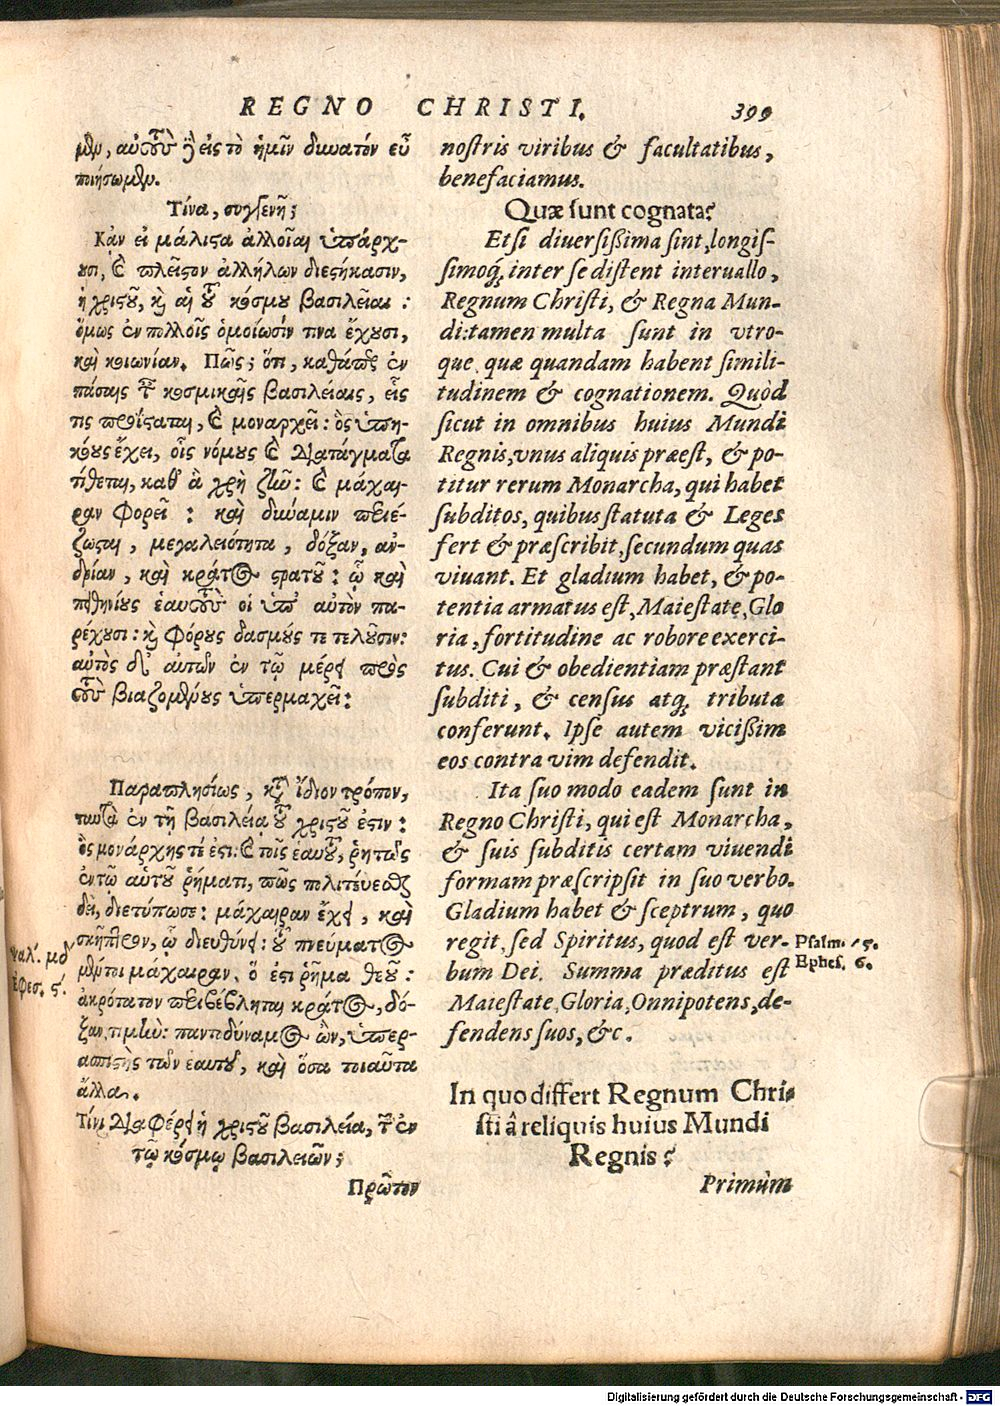 REGNO CHRISTI. 399
μθυ, αὐτοῦ εἰς τὸ ἡμῖν δυνατόν εὖ
ποιήσωμεν.
Τίνα, συγγενῆ;
Κἀν εἰ μάλιστα ἀλλοῖαι ὑπάρχ-
ουσι, καὶ πλεῖστον ἀλλήλων διεστήκασιν,
ἡ χριστοῦ, καὶ αἱ τοῦ κόσμου βασιλεῖαι:
ὅμως ἐν πολλοῖς ὁμοίωσίν τινα ἔχουσι,
καὶ κοινωνίαν. Πῶς; ὅτι, καθάπερ ἐν
πάσαις ταῖς κοσμικαῖς βασιλείαις, εἷς
τις προΐσταται, καὶ μοναρχεῖ: ὃς ὑπη-
κόους ἔχει, οἷς νόμους καὶ διατάγματα
τίθεται, καθ' ἃ χρὴ ζῆν: καὶ μάχαι-
ραν φορεῖ: καὶ δύναμιν περιέ-
ζωται, μεγαλειότητα, δόξαν, ἀν-
δρίαν, καὶ κράτος στρατοῦ: ᾧ καὶ
πειθηνίους ἑαυτοὺς οἱ ὑπ' αὐτὸν πα-
ρέχουσι: καὶ φόρους δασμούς τε τελοῦσιν:
αὐτὸς δι' αὐτῶν ἐν τῷ μέρει πρὸς
τοὺς βιαζομένους ὑπερμαχεῖ:
Παραπλησίως, κατ' ἴδιον τρόπον,
ταῦτα ἐν τῇ βασιλείᾳ τοῦ χριστοῦ ἐστιν:
ὃς μονάρχης τέ ἐστι: καὶ τοῖς ἑαυτοῦ, ῥητῶς
ἐν τῷ αὑτοῦ ῥήματι, πῶς πολιτεύεσθαι
δεῖ, διετύπωσε: μάχαιραν ἔχει, καὶ
σκῆπτρον, ᾧ διευθύνει: τοῦ πνεύματος
μέντοι μάχαιραν, ὅ ἐστι ῥῆμα θεοῦ:
ἀκρότατον περιβέβληται κράτος, δό-
ξαν, τιμὴν: παντιδύναμος ὢν, ὑπερ-
ασπιστὴς τῶν ἑαυτοῦ, καὶ ὅσα τοιαῦτα
ἄλλα.
Τίνι διαφέρει ἡ χριστοῦ βασιλεία, τῶν ἐν
τῷ κόσμῳ βασιλειῶν;
Πρῶτον
ψαλ. μδ
ἐφεσ. ϛ.
nostris viribus & facultatibus,
benefaciamus.
Quæ sunt cognata?
Etsi diuersißima sint, longis-
simoq́; inter se distent interuallo,
Regnum Christi, & Regna Mun-
di: tamen multa sunt in vtro-
que, quæ quandam habent simili-
tudinem & cognationem. Quòd
sicut in omnibus huius Mundi
Regnis, vnus aliquis præest, & po-
titur rerum Monarcha, qui habet
subditos, quibus statuta & Leges
fert & præscribit, secundum quas
viuant. Et gladium habet, & po-
tentia armatus est, Maiestate, Glo
ria, fortitudine ac robore exerci-
tus. Cui & obedientiam præstant
subditi, & census atq́; tributa
conferunt. Ipse autem vicißim
eos contra vim defendit.
Ita suo modo eadem sunt in
Regno Christi, qui est Monarcha,
& suis subditis certam viuendi
formam præscripsit in suo verbo.
Gladium habet & sceptrum, quo
regit, sed Spiritus, quod est ver-
bum Dei. Summa præditus est
Maiestate, Gloria, Omnipotens, de-
fendens suos, &c.
Psalm. 45.
Ephes. 6.
In quo differt Regnum Chri-
sti â reliquis huius Mundi
Regnis?
Primùm
Digitalisierung gefördert durch die Deutsche Forschungsgemeinschaft - DFG